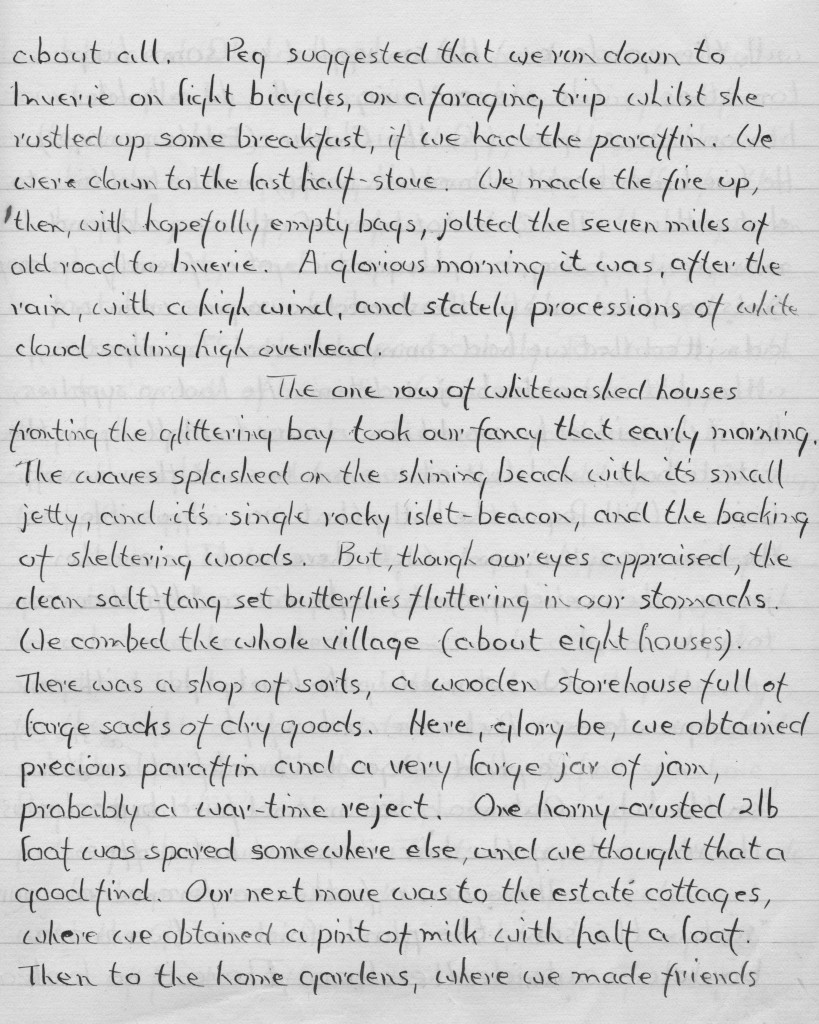 about all.   Peg suggested that we run down to
Inverie on light bicycles, on a foraging trip whilst she
rustled up some breakfast, if we had the paraffin. We
were down to the last half-stove. We made the fire up,
then, with hopefully empty bags, jolted the seven miles of
old road to Inverie.  A glorious morning it was, after the
rain, with a high wind, and stately processions of white
cloud sailing high overhead.
The one row of whitewashed houses
fronting the glittering bay took our fancy that early morning.
The waves splashed on the shining beach with it's small
jetty, and it's single rocky islet-beacon, and the backing
of sheltering woods.  But, though our eyes appraised, the
clean salt-tang set butterflies fluttering in our stomachs.
We combed the whole village (about eight houses).
There was a shop of sorts, a wooden storehouse full of
large sacks of dry goods.  Here, glory be, we obtained
precious paraffin and a very large jar of jam,
probably a war-time reject.  One horny-crusted 2lb
loaf was spared somewhere else, and we thought that a
good find.  Our next move was to the estate cottages,
where we obtained a pint of milk with half a loaf.
Then to the home gardens, where we made friends